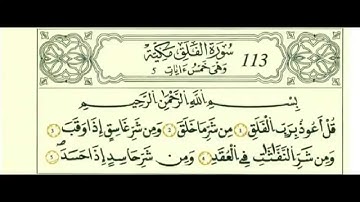 سُورَةُ الْفَلَقِ مَكِّيَّة 113
وَهْيَ خَمْسُ ءَايَاتٍ 5
بِسْمِ اللَّهِ الرَّحْمَٰنِ الرَّحِيمِ
قُلْ أَعُوذُ بِرَبِّ الْفَلَقِ ① مِن شَرِّ مَا خَلَقَ ② وَمِن شَرِّ غَاسِقٍ إِذَا وَقَبَ ③
وَمِن شَرِّ النَّفَّٰثَٰتِ فِي الْعُقَدِ ④ وَمِن شَرِّ حَاسِدٍ إِذَا حَسَدَ ⑤